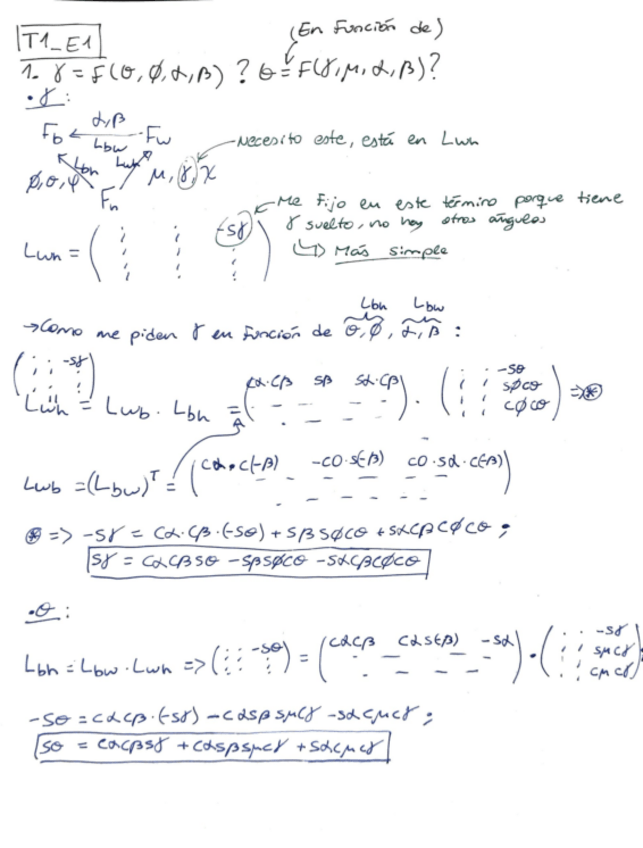 (En función de)
T1_E1
1. γ = F(θ, ϕ, α, β) ? θ = F(γ, μ, α, β)?
• γ :
α, β
Fb ← Fw
Lbw
Necesito este, está en Lwh
Lbh Lwh
ϕ, θ, ψ μ, γ, χ
Fh
Me fijo en este término porque tiene
γ suelto, no hay otros ángulos
Más simple
Lwh = ( -sγ )
Lbh Lbw
→ Como me piden γ en función de θ, ϕ, α, β :
( -sγ )
Lwh = Lwb · Lbh = ( cα·cβ sβ sα·cβ ) · ( -sθ sϕcθ cϕcθ ) => ⊛
Lwb = (Lbw)^T = ( cα·c(-β) -c0·s(-β) c0·sα·c(-β) )
⊛ => -sγ = cα·cβ·(-sθ) + sβsϕcθ + sαcβcϕcθ ;
sγ = cαcβsθ - sβsϕcθ - sαcβcϕcθ
• θ :
Lbh = Lbw · Lwh => ( -sθ ) = ( cαcβ cαs(-β) -sα ) · ( -sγ sμcγ cμcγ )
-sθ = cαcβ·(-sγ) - cαsβsμcγ - sαcμcγ ;
sθ = cαcβsγ + cαsβsμcγ + sαcμcγ